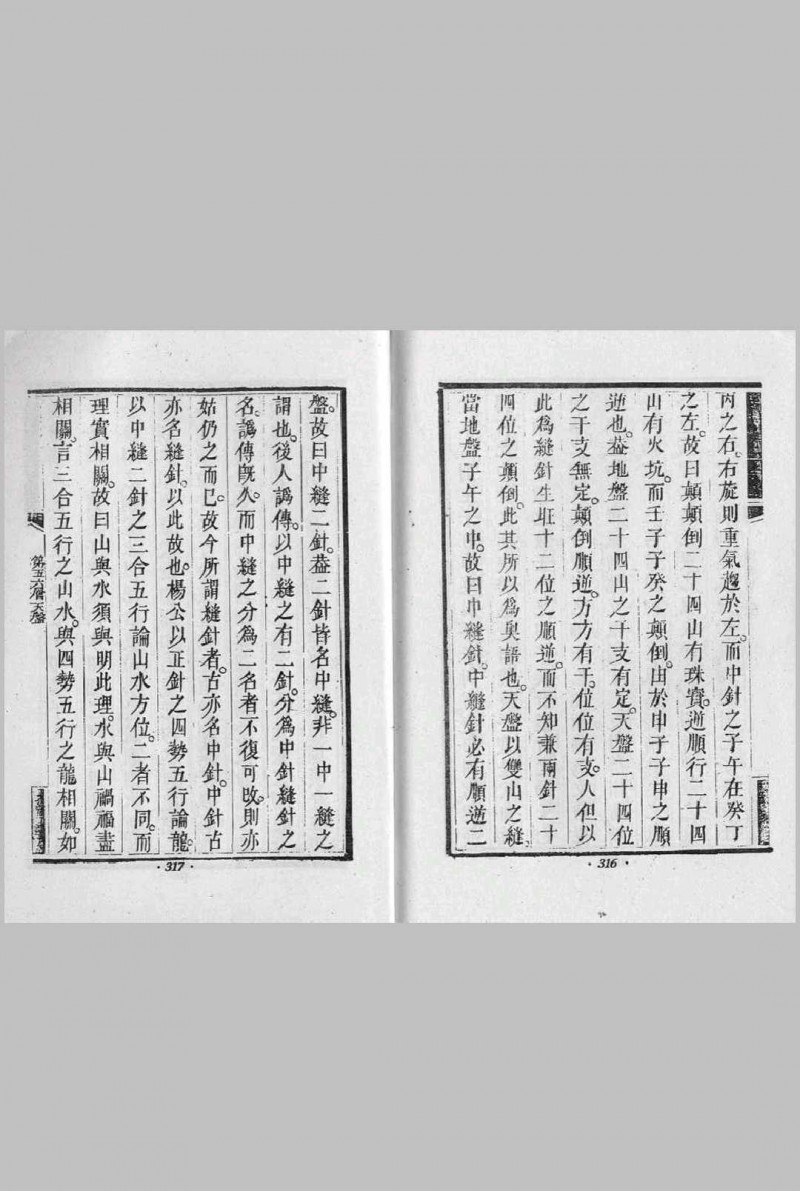 丙之右。右旋則重氣趨於左。而中針之子午在癸丁
之左。故曰顛顛倒二十四山有珠寶。逆順行二十四
山有火坑。而壬子子癸之顛倒。由於申子子申之順
逆也。葢地盤二十四山之干支有定。天盤二十四位
之干支無定。顛倒順逆。方方有干。位位有支。人但以
此為縫針生旺十二位之順逆。而不知兼兩針二十
四位之顛倒。此其所以為奥語也。天盤以雙山之縫。
當地盤子午之中。故曰中縫針。中縫針必有順逆二
· 316 ·
盤。故曰中縫二針。葢二針皆名中縫。非一中一縫之
謂也。後人譌傳。以中縫之有二針。分為中針縫針之
名。譌傳旣久。而中縫之分為二名者不復可改。則亦
姑仍之而已。故今所謂縫針者。古亦名中針。中針古
亦名縫針。以此故也。楊公以正針之四勢五行論龍。
以中縫二針之三合五行論山水方位。二者不同。而
理實相關。故曰山與水須與明此理。水與山禍福盡
相關。言三合五行之山水。與四勢五行之龍相關。如
第五六層天盤
· 317 ·